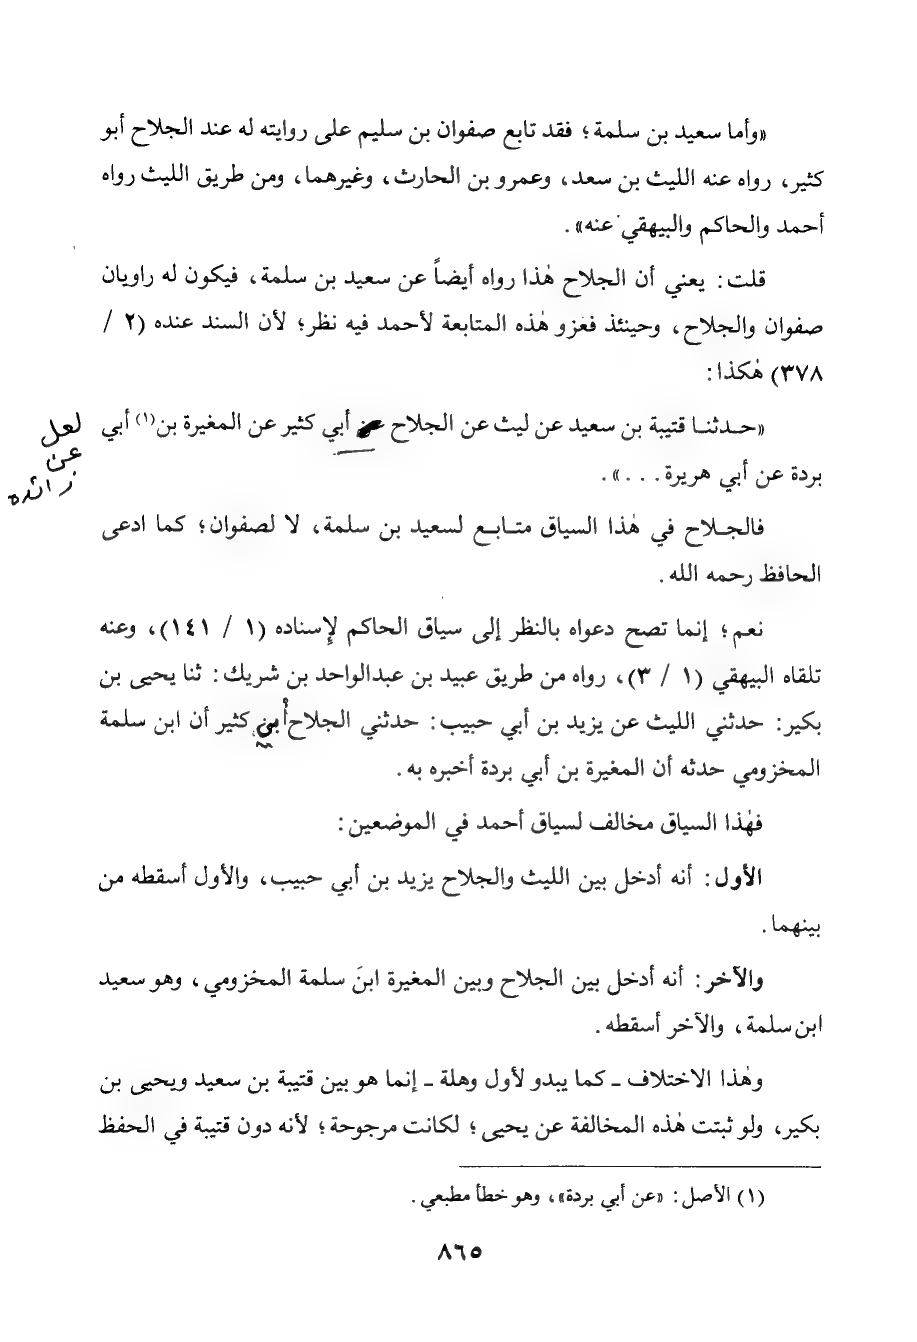 «وأما سعيد بن سلمة؛ فقد تابع صفوان بن سليم على روايته له عند الجلاح أبو
كثير، رواه عنه الليث بن سعد، وعمرو بن الحارث، وغيرهما، ومن طريق الليث رواه
أحمد والحاكم والبيهقي عنه».
قلت: يعني أن الجلاح هٰذا رواه أيضاً عن سعيد بن سلمة، فيكون له راويان
صفوان والجلاح، وحينئذ فعزو هٰذه المتابعة لأحمد فيه نظر؛ لأن السند عنده (٢ /
٣٧٨) هٰكذا:
«حـدثنـا قتيبة بن سعيد عن ليث عن الجلاح عن أبي كثير عن المغيرة بن(١) أبي
لعل
عن
زائدة
بردة عن أبي هريرة. . . .».
فالجـلاح في هٰذا السياق متـابـع لسعيد بن سلمة، لا لصفوان؛ كما ادعى
الحافظ رحمه الله.
نعم؛ إنما تصح دعواه بالنظر إلى سياق الحاكم لإسناده (١ / ١٤١)، وعنه
تلقاه البيهقي (١ / ٣)، رواه من طريق عبيد بن عبدالواحد بن شريك: ثنا يحيى بن
بكير: حدثني الليث عن يزيد بن أبي حبيب: حدثني الجلاح أبي كثير أن ابن سلمة
المخزومي حدثه أن المغيرة بن أبي بردة أخبره به.
فهٰذا السياق مخالف لسياق أحمد في الموضعين:
الأول: أنه أدخل بين الليث والجلاح يزيد بن أبي حبيب، والأول أسقطه من
بينهما.
والآخر: أنه أدخل بين الجلاح وبين المغيرة ابنَ سلمة المخزومي، وهو سعيد
ابن سلمة، والآخر أسقطه.
وهٰذا الاختلاف ـ كما يبدو لأول وهلة ـ إنما هو بين قتيبة بن سعيد ويحيى بن
بكير، ولو ثبتت هٰذه المخالفة عن يحيى؛ لكانت مرجوحة؛ لأنه دون قتيبة في الحفظ
(١) الأصل: «عن أبي بردة»، وهو خطأ مطبعي.
٨٦٥